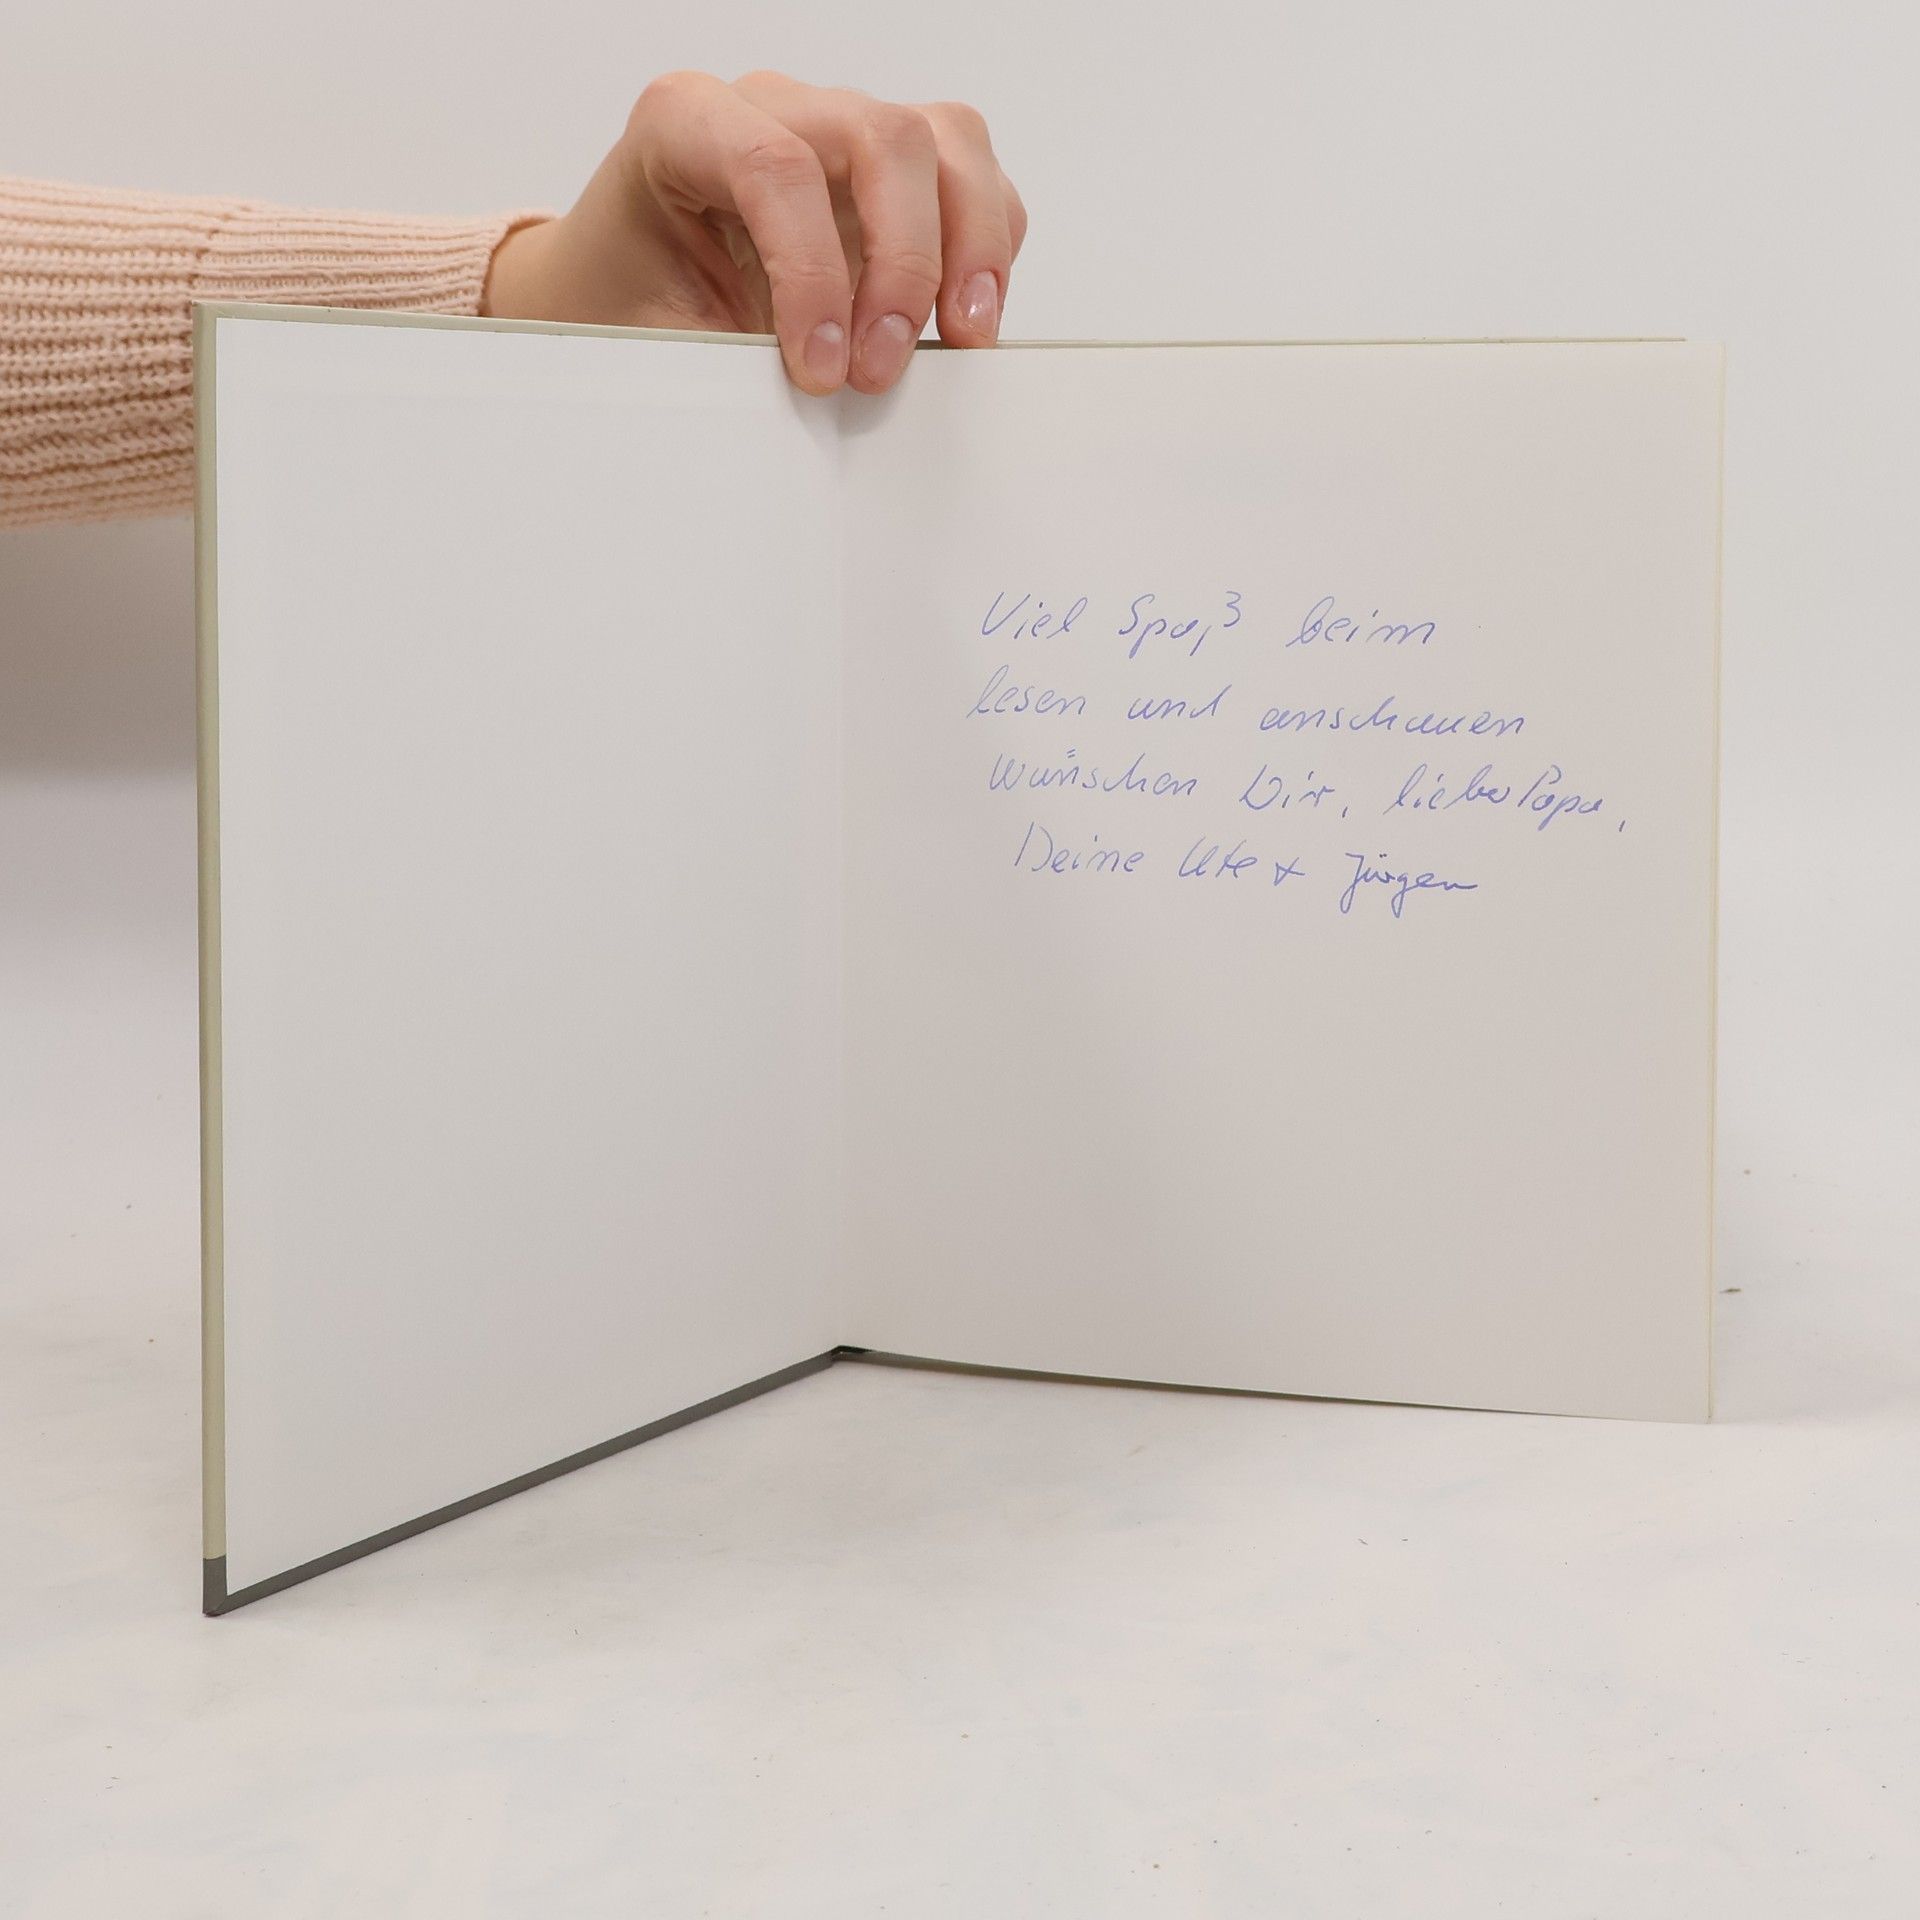 Viel Spaß beim
lesen und anschauen
wünschen Dir, lieber Papa,
Deine Ute + Jürgen